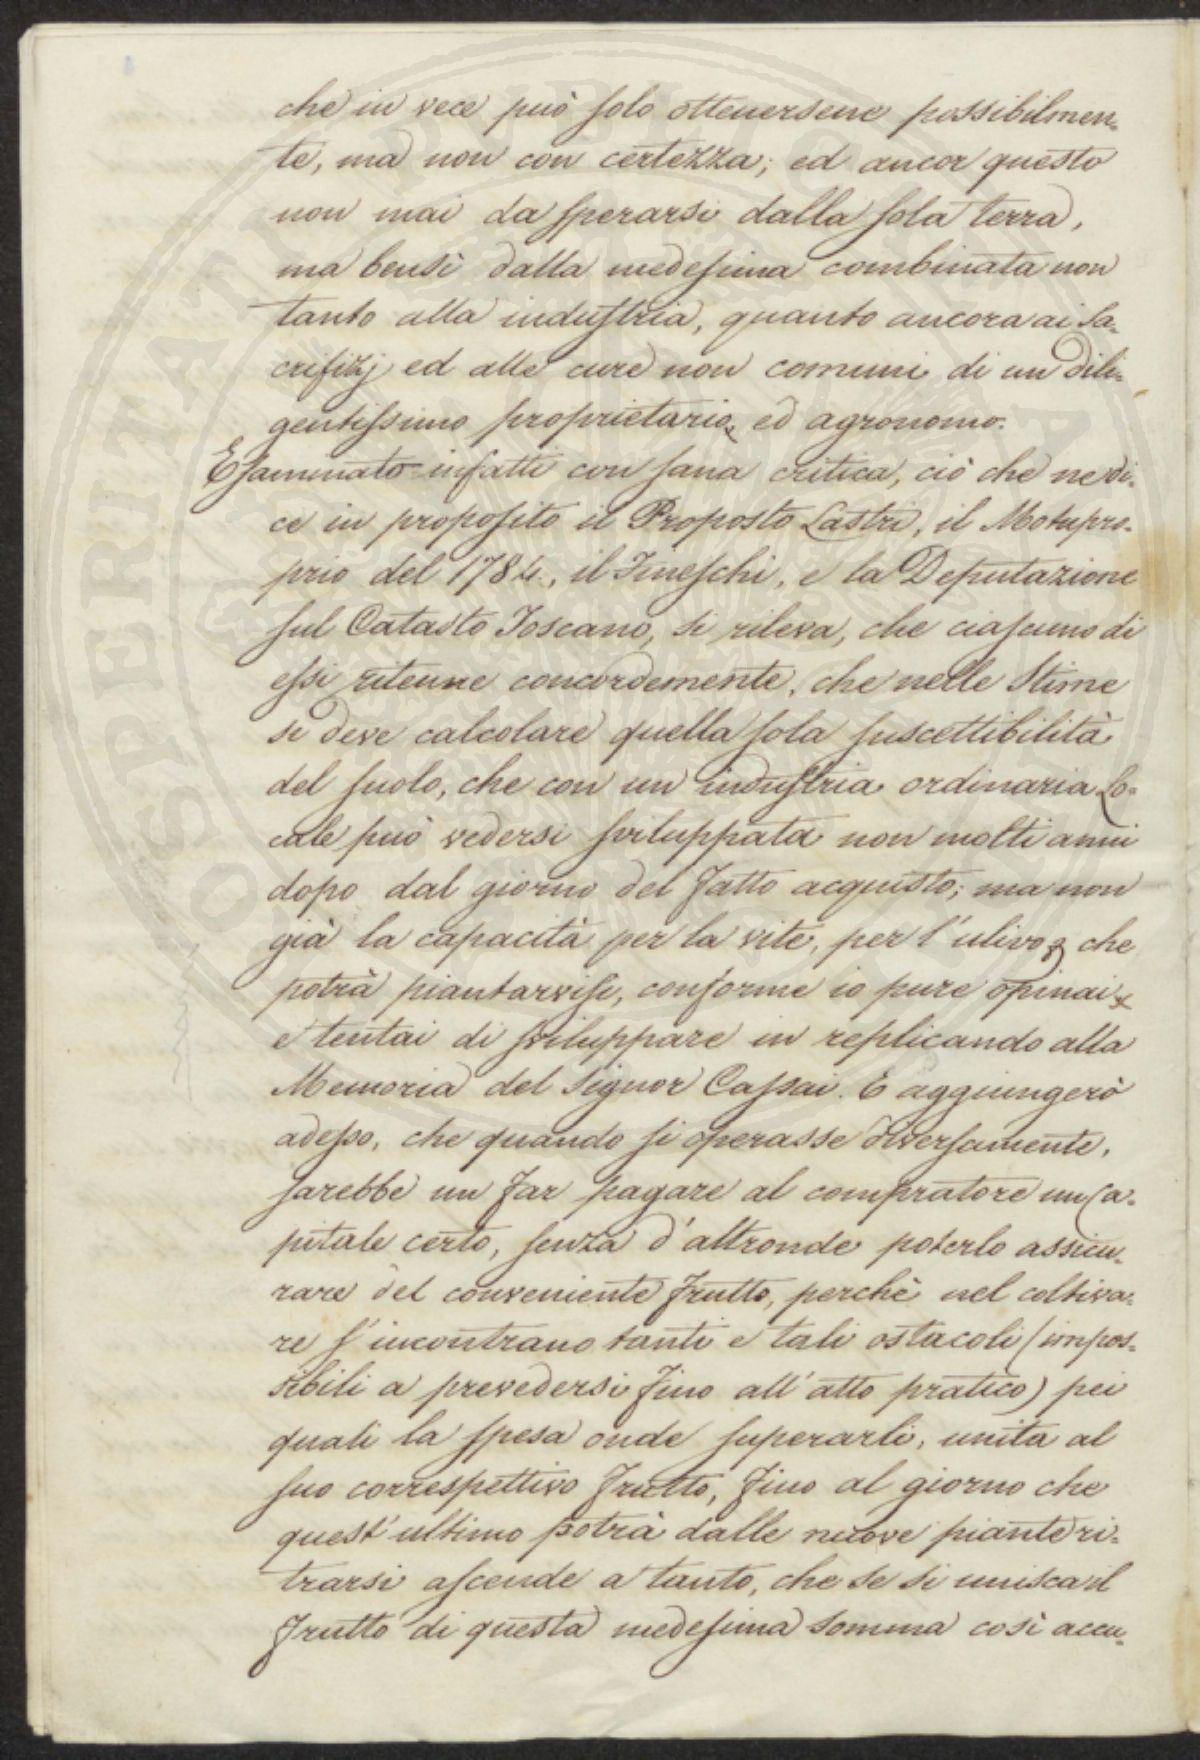 che in vece può solo ottenersene possibilmen-
te, ma non con certezza; ed ancor questo
non mai da sperarsi dalla sola terra,
ma bensì dalla medesima combinata non
tanto alla industria, quanto ancora ai sa-
crifizj ed alle cure non comuni di un dili-
gentissimo proprietario, ed agronomo.
Esaminato infatti con sana critica, ciò che ne di-
ce in proposito il Proposto Lastri, il Motupro-
prio del 1784., il Fineschi, e la Deputazione
sul Catasto Toscano, si rileva, che ciascuno di
essi ritenne concordemente, che nelle Stime
si deve calcolare quella sola suscettibilità
del suolo, che con un industria ordinaria Lo-
cale può vedersi sviluppata non molti anni
dopo dal giorno del fatto acquisto; ma non
già la capacità per la vite, per l'ulivo, che
potrà piantarvisi, conforme io pure opinai,
e tentai di sviluppare in replicando alla
Memoria del Signor Cassai. E aggiungerò
adesso, che quando si operasse diversamente,
sarebbe un far pagare al compratore un Ca-
pitale certo, senza d'altronde poterlo assicu-
rare del conveniente frutto, perchè nel coltiva-
re s'incontrano tanti e tali ostacoli (impos-
sibili a prevedersi fino all'atto pratico) pei
quali la spesa onde superarli, unita al
suo correspettivo frutto, fino al giorno che
quest'ultimo potrà dalle nuove piante ri-
trarsi ascende a tanto, che se si unisca il
frutto di questa medesima somma così accu-
PROSPERITATI PUBLICAE